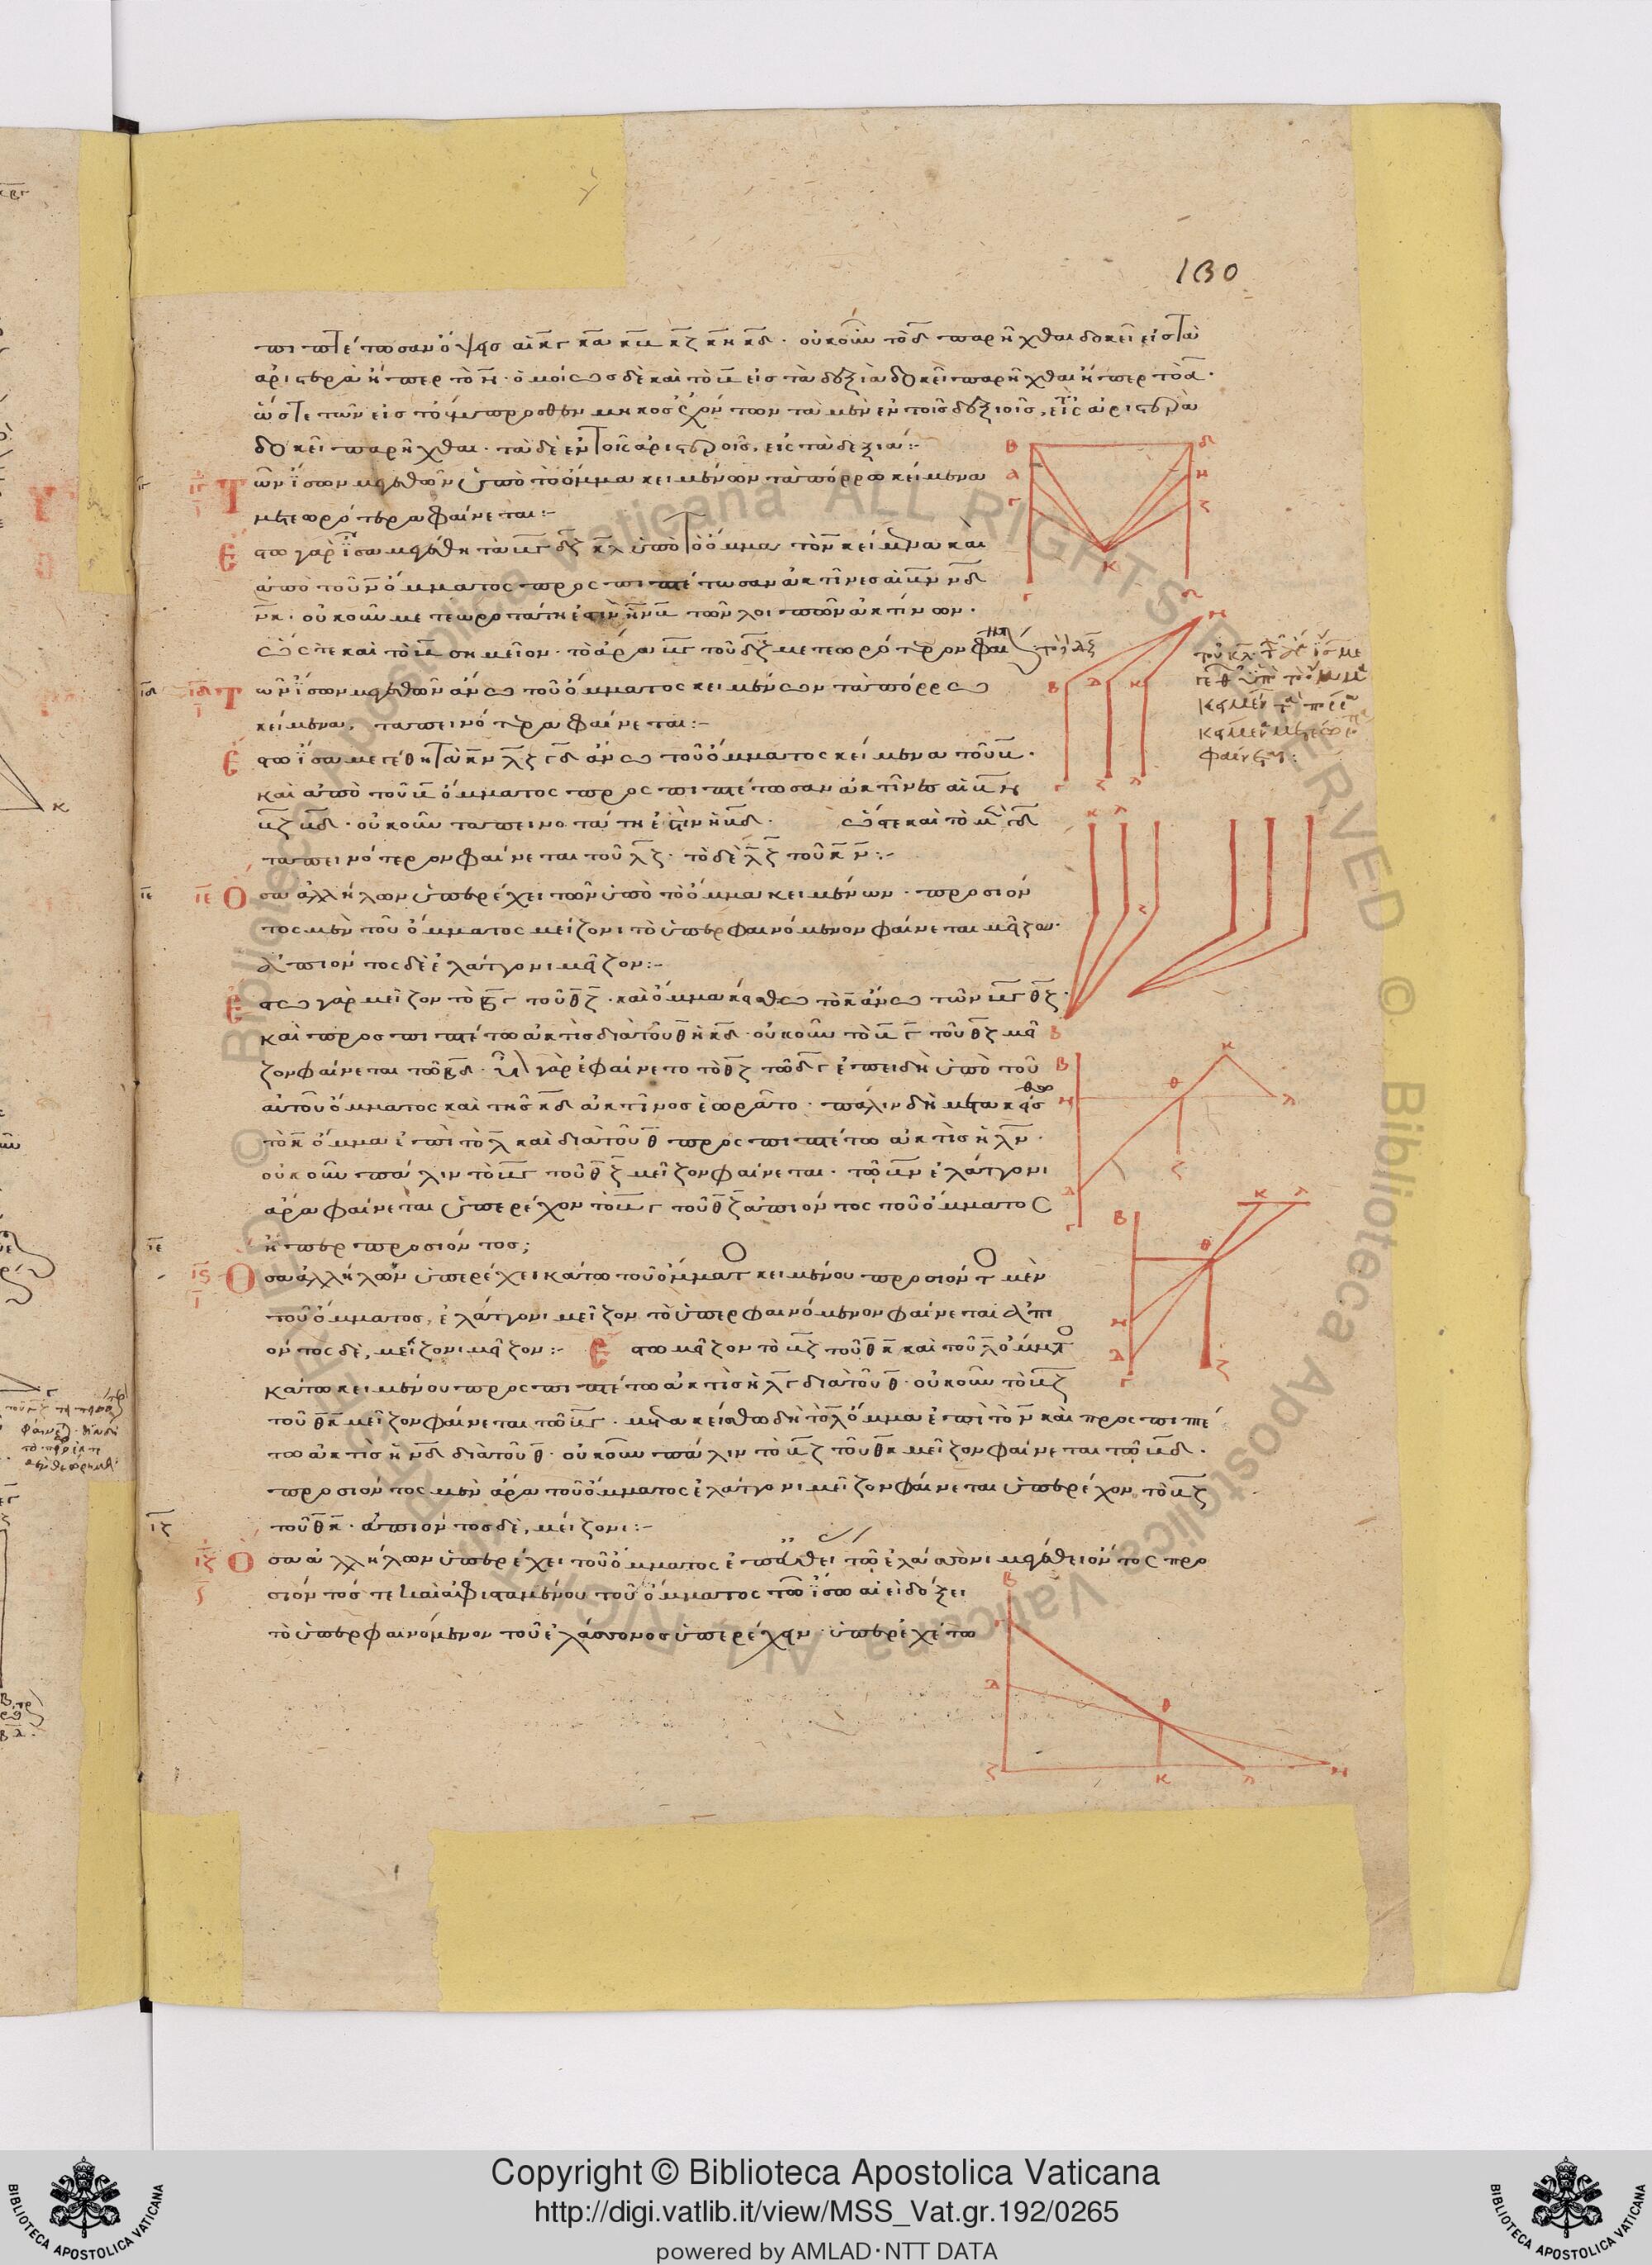 130
πιπτέτωσαν ὄψεις αἱ κγ κα κβ κζ κη κδ · οὐκοῦν τὸ δ παρῆχθαι δοκεῖ εἰς τὰ
ἀριστερὰ ἤπερ τὸ η · ὁμοίως δὲ καὶ τὸ β εἰς τὰ δεξιὰ δοκεῖ παρῆχθαι ἤπερ τὸ α ·
ὥστε τῶν εἰς τὸ ἔμπροσθεν μῆκος ἐχόντων τὰ μὲν ἐν τοῖς δεξιοῖς, εἰς ἀριστερὰ
δοκεῖ παρῆχθαι · τὰ δὲ ἐν τοῖς ἀριστεροῖς, εἰς τὰ δεξιά :-
ιγ Τῶν ἴσων μεγεθῶν ὑπὸ τὸ ὄμμα κειμένων τὰ πόρρω κείμενα
μετεωρότερα φαίνεται :-
Ἔστω γὰρ ἴσα μεγέθη τὰ βγ δζ κλ ὑπὸ τὸ ὄμμα τὸ ν κείμενα καὶ
ἀπὸ τοῦ ν ὄμματος προσπιπτέτωσαν ἀκτῖνες αἱ βν νδ
νκ · οὐκοῦν μετεωροτάτη ἐστὶν ἡ νβ τῶν λοιπῶν ἀκτίνων ·
ὥστε καὶ τὸ β σημεῖον · τὸ ἄρα βγ τοῦ δζ μετεωρότερον φαί
ιδ Τῶν ἴσων μεγεθῶν ἄνω τοῦ ὄμματος κειμένων τὰ πόρρω
κείμενα, ταπεινότερα φαίνεται :-
Ἔστω ἴσα μεγέθη τὰ κν λζ γδ ἄνω τοῦ ὄμματος κείμενα τοῦ β ·
καὶ ἀπὸ τοῦ β ὄμματος προσπιπτέτωσαν ἀκτῖνες αἱ βν
βζ βδ · οὐκοῦν ταπεινοτάτη ἐστὶν ἡ βδ · ὥστε καὶ τὸ γδ
ταπεινότερον φαίνεται τοῦ λζ · τὸ δὲ λζ τοῦ κν :-
ιε Ὅσα ἀλλήλων ὑπερέχει τῶν ὑπὸ τὸ ὄμμα κειμένων · προσιόν
τος μὲν τοῦ ὄμματος μείζονι τὸ ὑπερφαινόμενον φαίνεται μεῖζον ·
ἀπιόντος δὲ ἐλάττονι μεῖζον :-
Ἔστω γὰρ μεῖζον τὸ βγ τοῦ θζ · καὶ ὄμμα κείσθω τὸ κ ἄνω τῶν βγ θζ ·
καὶ προσπιπτέτω ἀκτὶς διὰ τοῦ θ ἡ κδ · οὐκοῦν τὸ βγ τοῦ θζ μεῖ
ζον φαίνεται τῷ βδ · γὰρ ἐφαίνετο τὸ θζ τῷ δγ ἐπειδὴ ὑπὸ τοῦ
αὐτοῦ ὄμματος καὶ τῆς κδ ἀκτῖνος ἑωρᾶτο · πάλιν δὴ μετακείσθω
τὸ κ ὄμμα ἐπὶ τὸ λ καὶ διὰ τοῦ θ προσπιπτέτω ἀκτὶς ἡ λν ·
οὐκοῦν πάλιν τὸ βγ τοῦ θζ μεῖζον φαίνεται · τῷ βν ἐλάττονι
ἄρα φαίνεται ὑπερέχον τὸ βγ τοῦ θζ ἀπιόντος τοῦ ὄμματος
ἤπερ προσιόντος ;
ις Ὅσα ἀλλήλων ὑπερέχει κάτω τοῦ ὄμματος κειμένου προσιόντος μὲν
τοῦ ὄμματος, ἐλάττονι μεῖζον τὸ ὑπερφαινόμενον φαίνεται ἀπι
όντος δὲ, μείζονι μεῖζον :- Ἔστω μεῖζον τὸ βζ τοῦ θκ καὶ τοῦ λ ὄμματος
κάτω κειμένου προσπιπτέτω ἀκτὶς ἡ λγ διὰ τοῦ θ · οὐκοῦν τὸ βζ
τοῦ θκ μεῖζον φαίνεται τῷ βγ · μετακείσθω δὴ τὸ λ ὄμμα ἐπὶ τὸ ν καὶ προσπιπτέ
τω ἀκτὶς ἡ νδ διὰ τοῦ θ · οὐκοῦν πάλιν τὸ βζ τοῦ θκ μεῖζον φαίνεται τῷ βδ ·
προσιόντος μὲν ἄρα τοῦ ὄμματος ἐλάττονι μεῖζον φαίνεται ὑπερέχον τὸ βζ
τοῦ θκ · ἀπιόντος δὲ, μείζονι :-
ιζ Ὅσα ἀλλήλων ὑπερέχει τοῦ ὄμματος ἐπ' εὐθεί τῷ ἐλάσσονι μεγέθει ὄντος προ
σιόντος τε καὶ ἀφισταμένου τοῦ ὄμματος τῷ ἴσῳ αἰεὶ δόξει
τὸ ὑπερφαινόμενον τοῦ ἐλάσσονος ὑπερέχειν · ὑπερεχέτω
Copyright © Biblioteca Apostolica Vaticana
http://digi.vatlib.it/view/MSS_Vat.gr.192/0265
powered by AMLAD·NTT DATA
BIBLIOTECA APOSTOLICA VATICANA
BIBLIOTECA APOSTOLICA VATICANA